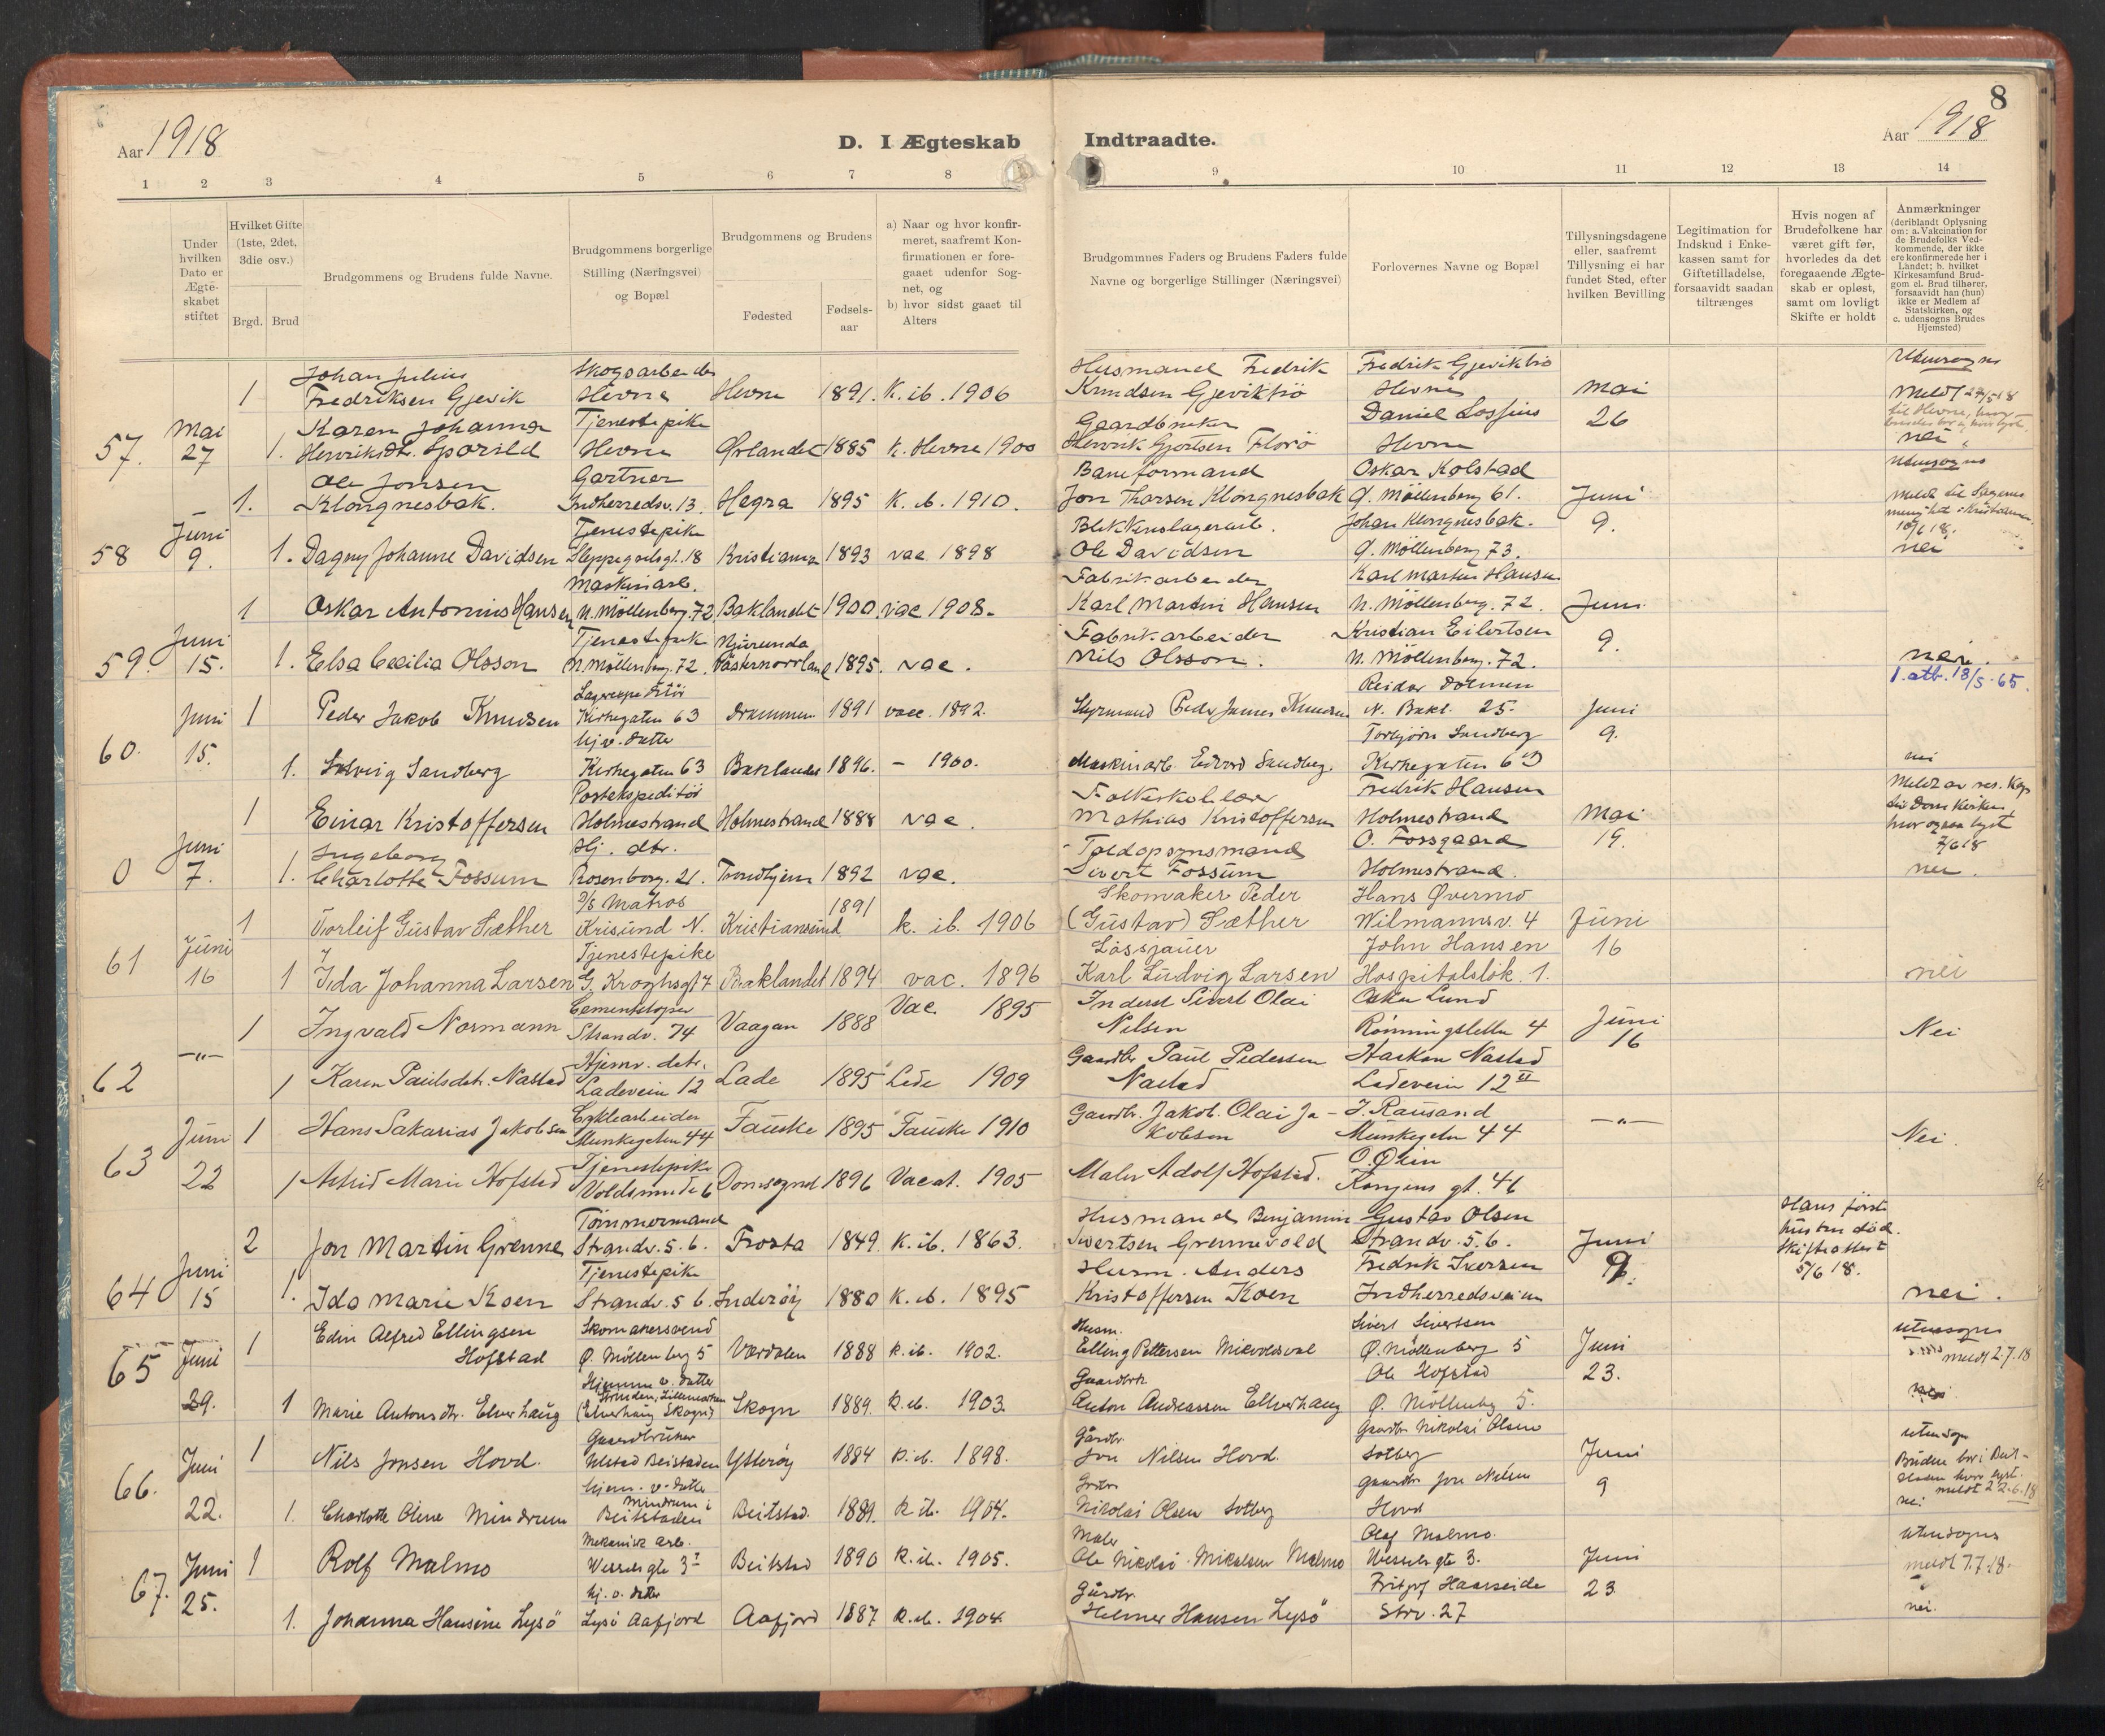 8
Aar 1918
D. I Ægteskab Indtraadte.
Aar 1918
1 2 3 4 5 6 7 8 9 10 11 12 13 14
Under hvilken Dato er Ægteskabet stiftet
Hvilket Gifte (1ste, 2det, 3die osv.)
Brgd. Brud
Brudgommens og Brudens fulde Navne.
Brudgommens borgerlige Stilling (Næringsvei) og Bopæl
Brudgommens og Brudens
Fødested
Fødsels-aar
a) Naar og hvor konfirmeret, saafremt Konfirmationen er foregaaet udenfor Sognet, og
b) hvor sidst gaaet til Alters
Brudgommnes Faders og Brudens Faders fulde Navne og borgerlige Stillinger (Næringsvei)
Forlovernes Navne og Bopæl
Tillysningsdagene eller, saafremt Tillysning ei har fundet Sted, efter hvilken Bevilling
Legitimation for Indskud i Enkekassen samt for Giftetilladelse, forsaavidt saadan tiltrænges
Hvis nogen af Brudefolkene har været gift før, hvorledes da det foregaaende Ægteskab er opløst, samt om lovligt Skifte er holdt
Anmærkninger (deriblandt Oplysning om: a. Vakcination for de Brudefolks Vedkommende, der ikke ere konfirmerede her i Landet; b. hvilket Kirkesamfund Brudgom el. Brud tilhører, forsaavidt han (hun) ikke er Medlem af Statskirken, og c. udensogns Brudes Hjemsted)
57. Mai 27
1 Johan Julius Fredriksen Gjevik Skogsarbeider Hevne Hevne 1891. K. ib. 1906 Husmand Fredrik Knudsen Gjeviktrø Fredrik Gjeviktrø Hevne Mai 26 Utensogns
1. Karen Johanna Henriksdt. Sporild Tjenestepike Hevne Ørlandet 1885 k. Hevne 1900 Gaardbruker Henrik Gjertsen Florø Daniel Lossius Hevne nei
58 Juni 9.
1. Ole Jonsen Klongnesbak. Gartner Indherredsv. 13. Hegra 1895 K. ib. 1910. Baneformand Jon Tharsen Klongnesbak Oskar Kolstad Ø. Möllenberg 61. Juni 9. Utensogns
1. Dagny Johanne Davidsen Tjenestepike Kristiania 1893 vac 1898 Blikkenslagerarb. Ole Davidsen Johan Klongnesbak. Ø. Möllenberg 73. nei
59. Juni 15.
1 Oskar Antonius Hansen Maskinarb. N. Möllenberg. 72. Baklandet 1900. vac 1908. Fabrikarbeider Karl Martin Hansen Karl Martin Hansen N. Möllenberg. 72. Juni 9.
1. Elsa Cecilia Olsson Tjenestepik N. Möllenberg. 72. Njurunda Västernorrland 1895. vac. Fabrikarbeider Nils Olsson. Kristian Eilertsen N. Möllenberg. 72. nei.
1. atb. 13/5-65.
60. Juni 15.
1 Peder Jakob Knudsen Kirkegaten 63 Drammen 1891 vacc. 1892. Styrmand Peder James Knudsen Reidar Dolmen N. Bakl. 25. Juni 9.
1. Solveig Sandberg hjv. datter Kirkegaten 63 Baklandet 1896. - 1900. Maskinarb. Edvard Sandberg. Torbjørn Sandberg Kirkegaten 63 nei
0 Juni 7.
1 Einar Kristoffersen Postekspeditör Holmestrand Holmestrand 1888 vac. Folkeskolelærer Mathias Kristoffersen Fredrik Hansen Holmestrand Mai 19.
1. Ingeborg Charlotte Fossum Hj. dtr. Rosenborg. 21. Trondhjem 1892 vac. Toldopsynsmand Sivert Fossum O. Fossgaard Holmestrand. nei.
61 Juni 16
1 Torleif Gustav Sæther D/S Matros Krisund N. Kristiansund 1891 k. ib. 1906 Skomaker Peder (Gustav) Sæther Hans Øvermo Wilmannsv. 4 Juni 16
1 Ida Johanna Larsen Tjenestepike G. Kroghsgt 7 Baklandet 1894 vac. 1896 Løssjauer Karl Ludvig Larsen John Hansen Hospitalsløk. 1. nei
62 -"-
1 Ingvald Normann Cementstøper Strandv. 74 Vaagan 1888 Vac. 1895 Inderst Sivert Olai Nilsen Oskar Lund Rönningsletta 4 Juni 16 Nei
1 Karen Paulsdtr. Nastad Hjemv. datr. Ladeveien 12 Lade 1895 Lade 1909 Gaardbr Paul Pedersen Nastad Haakon Nastad Ladeveien 12 II
63 Juni 22
1 Hans Sakarias Jakobsen Cyklearbeider Munkegaten 44 Fauske 1895 Fauske 1910 Gaardbr. Jakob Olai Jakobsen J. Rausand Munkegaten 44 -"- Nei.
1 Astrid Marie Hofstad Tjenestepike Voldsminde 6 Domsognet 1896 Vacat. 1905 Maler Adolf Hofstad. O. Øien Kongens gt. 46
64 Juni 15
2 Jon Martin Grønne Tömmermand Strandv. 5. b. Frosta 1849. K. ib. 1863. Husmand Benjamin Sivertsen Grønnevold Gustav Olsen Strandv. 5. b. Juni 9. Hans første hustru död. Skifteattest 5/6 18.
1. Ida Marie Koen Tjenestepike Strandv. 5 b. Inderøy 1880 K. ib. 1895 Husm. Anders Kristoffersen Koen Fredrik Iversen Indherredsveien nei.
65 Juni 29.
1 Edin Alfred Ellingsen Hofstad Skomakersvend Ø. Möllenberg 5 Værdalen 1888 k. ib. 1902. Husm. Elling Pettersen Mikvoldsval Sivert Sivertsen Ø. Möllenberg 5 Juni 23. utensogns meldt 2.7.18
1 Marie Antonsdtr. Elverhaug Hjemme v. datter (Elverhaug Skogn) Skogn 1889. k. ib. 1903. Gaardbr Anton Andreassen Elverhaug Ole Hofstad Ø. Möllenberg 5. nei
66. Juni 22.
1 Nils Jonsen Hovd. Gaardbruker Beistaden Ytterøy 1884 k. ib. 1898. Gårdbr. Jon Nilsen Hovd. Gaardbr Nikolai Olsen Solberg Juni 9 utensogn
1. Charlotte Oline Mindrum hjem. v. datter Mindrum i Beitstaden Beitstad. 1889. k. ib. 1904. Nikolai Olsen Solberg gaardbr Jon Nilsen Hovd meldt 22.6.18 nei
67. Juni 25.
1 Rolf Malmo Mekanisk arb. Wesselsgte 3 I Beitstad 1890 k. ib. 1905. Maler Ole Nikolai Mikalsen Malmo Olaf Malmo. Wesselsgte 3. Juni 23 utensogns meldt 7.7.18.
1. Johanna Hansine Lysö hj. v. datter Lysö Aafjord Aafjord 1887 k. ib. 1904. Gårdbr. Helmer Hansen Lysö Fritjof Haarseide Strv. 27 nei.